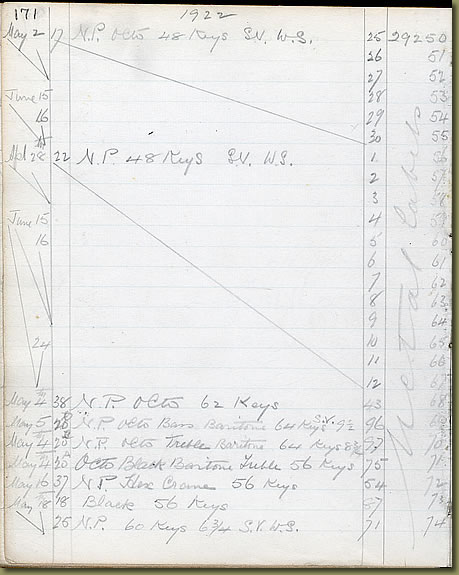 171 1922
May 2 17 N.P. Octo 48 Keys S.V. W.S. 25 29250
26 51
27 52
June 15 28 53
16 29 54
30 55
22 N.P. 48 Keys S.V. W.S. 1 56
2 57
3 58
June 15 4 59
16 5 60
6 61
7 62
8 63
9 64
24 10 65
11 66
12 67
May 4 38 N.P. Octo 62 Keys 43 68
May 5 N.P. Octo Bass Baritone 64 Keys S.V. 9½ 96
May 4 N.P. Octo Treble Baritone 64 Keys 97
May 4 20 Octo Black Baritone Treble 56 Keys 75 71
May 16 37 N.P. Hex Crane 56 Keys 54 72
May 18 18 Black 56 Keys 57 73
25 N.P. 60 Keys 6¾ S.V. W.S. 71 74
Metal Labels